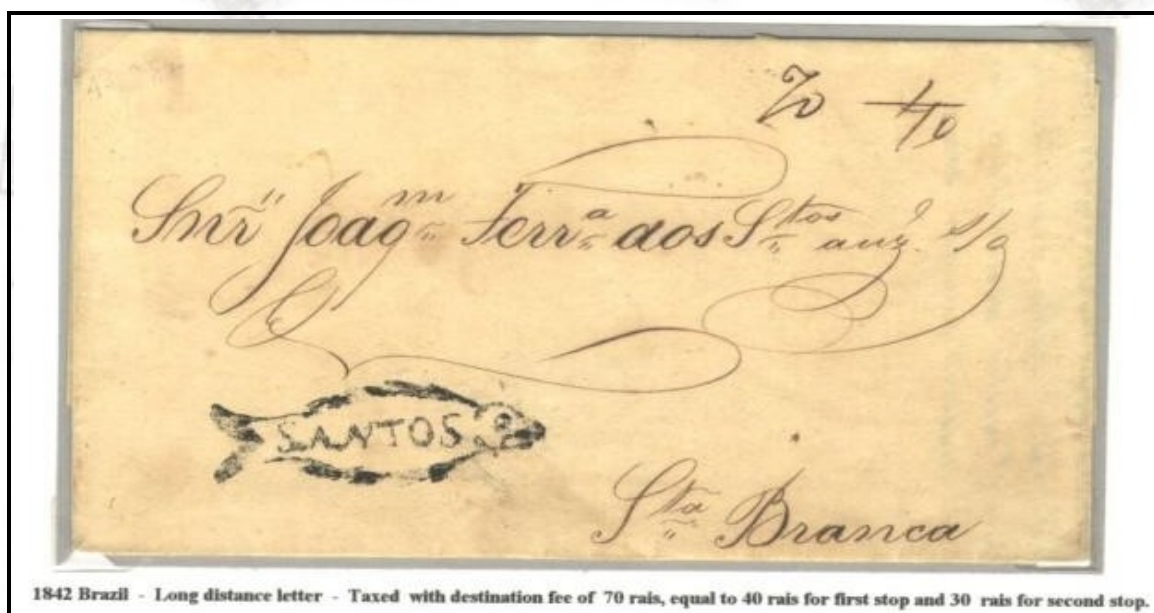 70
Snr Joaqm Ferra dos Stos
SANTOS
Sta Branca
1842 Brazil - Long distance letter - Taxed with destination fee of 70 rais, equal to 40 rais for first stop and 30 rais for second stop.